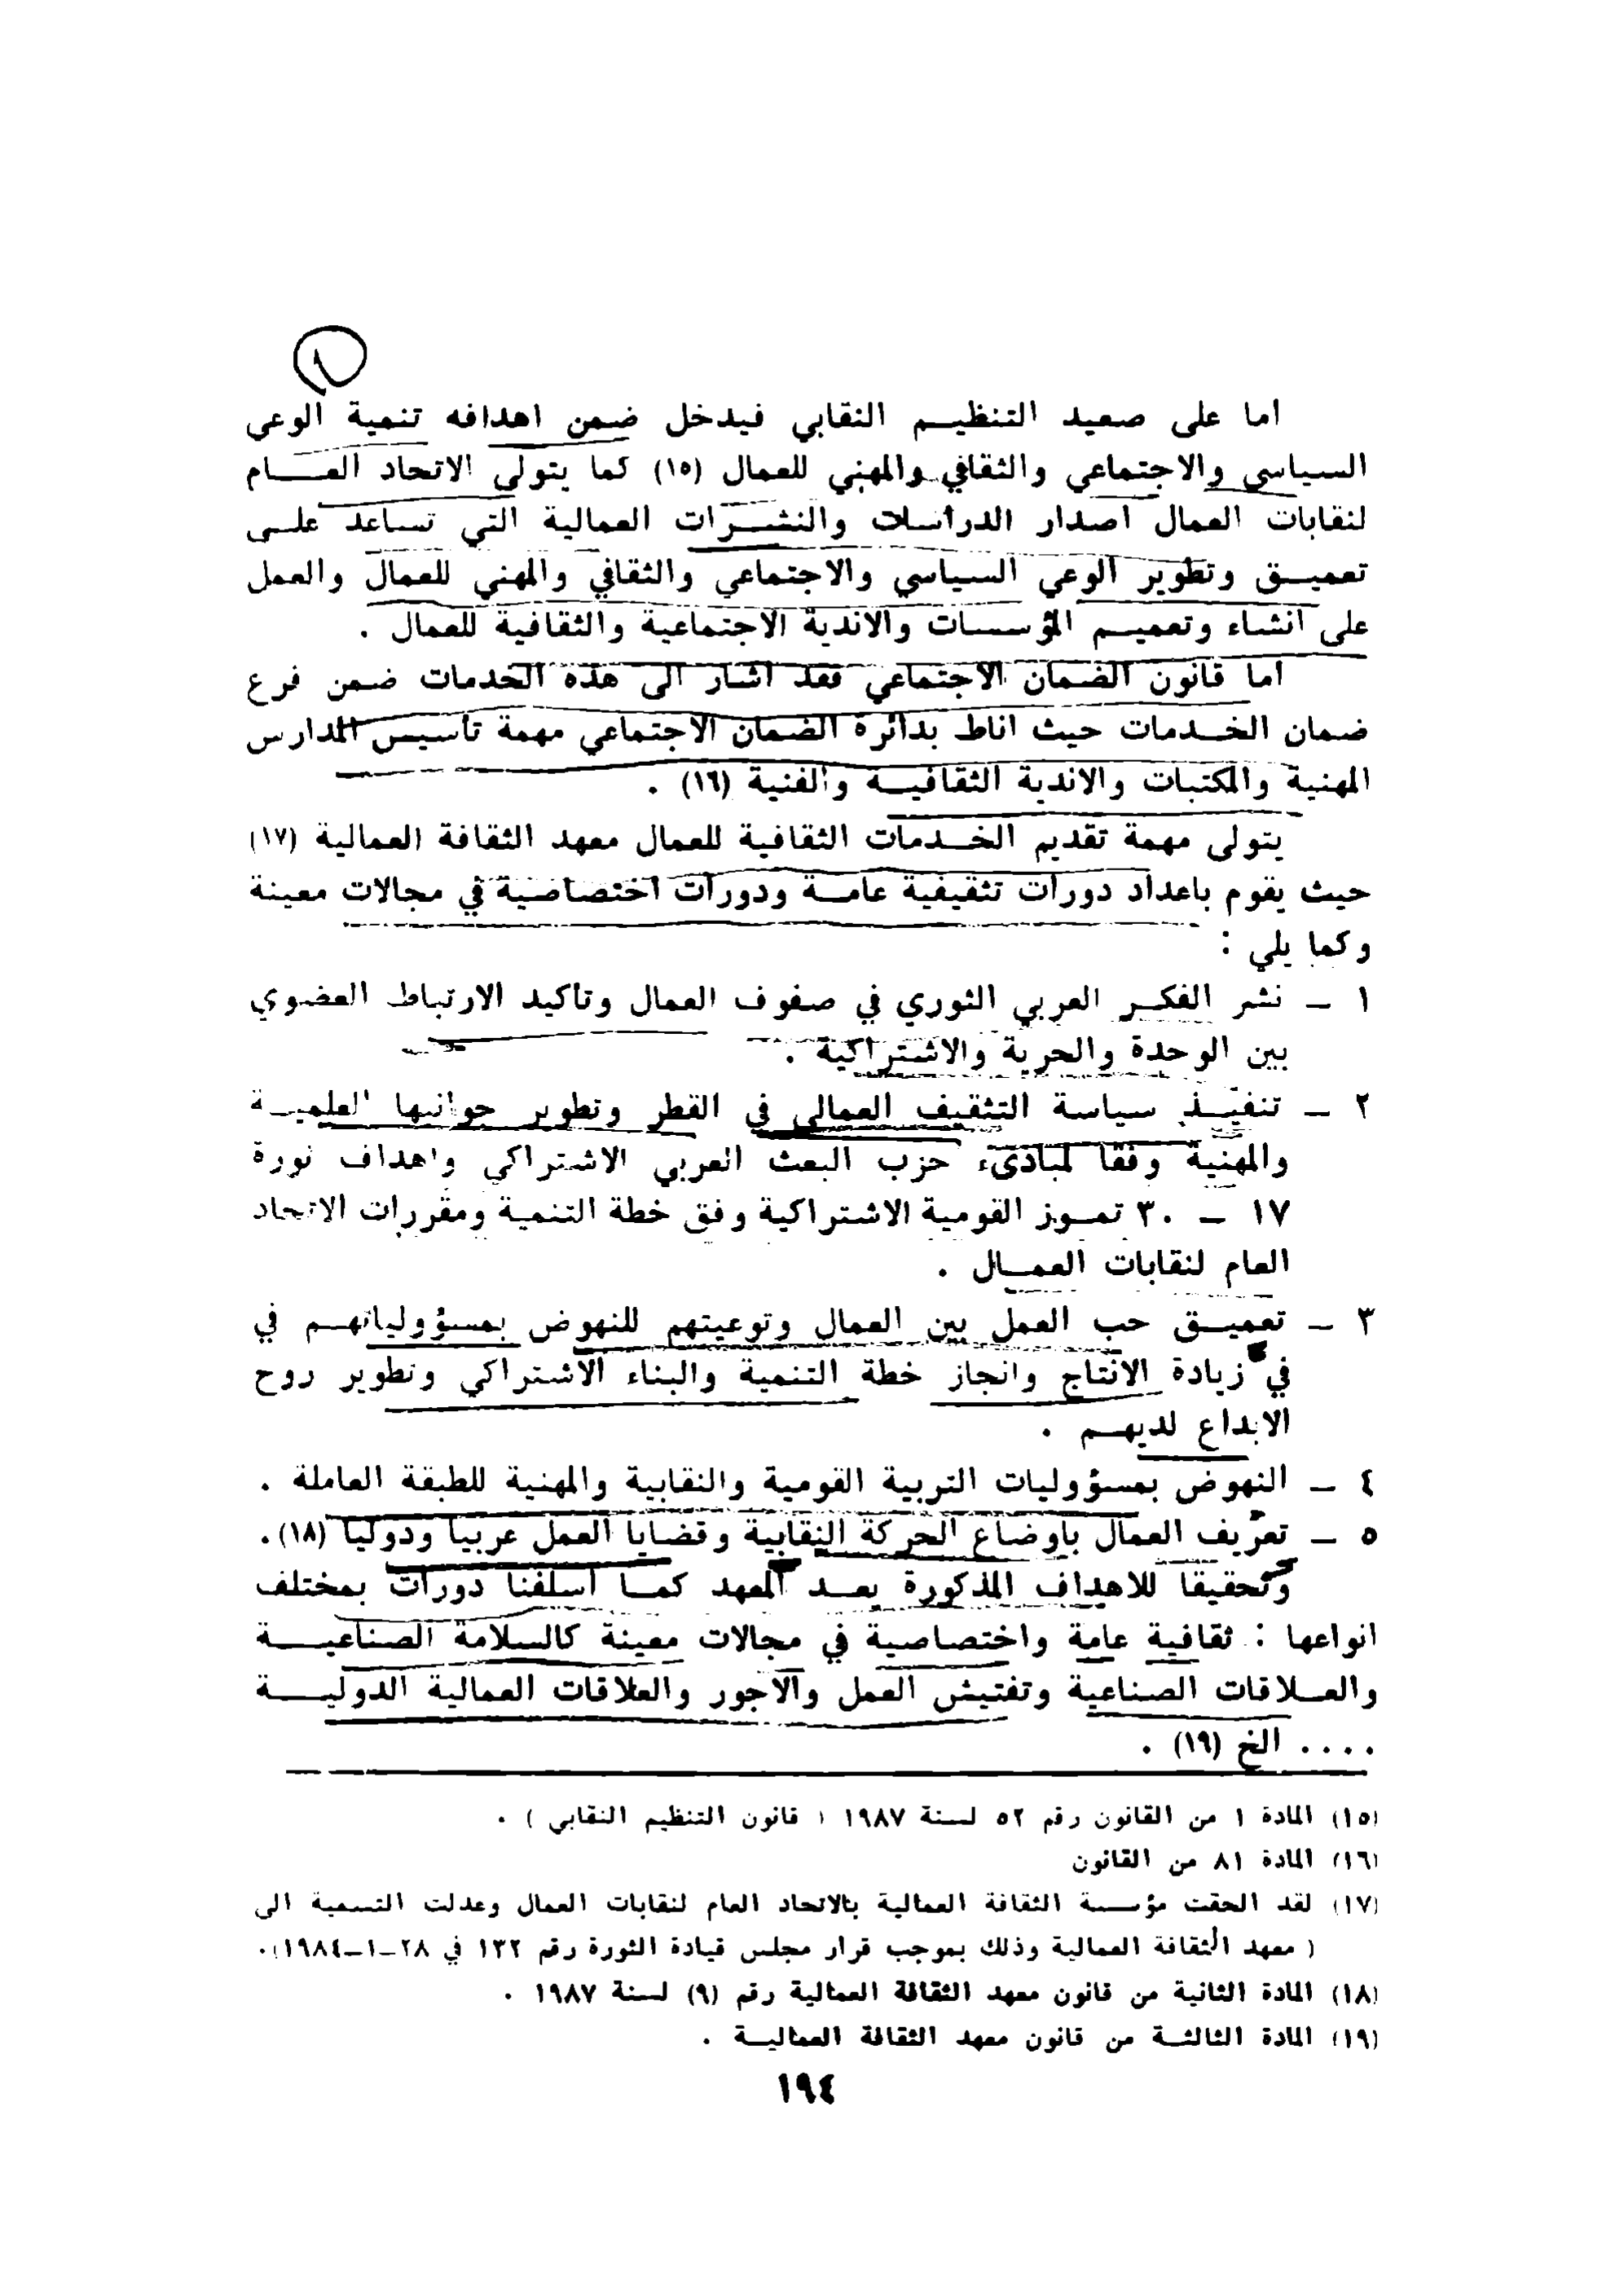 اما على صعيد التنظيم النقابي فيدخل ضمن اهدافه تنمية الوعي
السياسي والاجتماعي والثقافي والمهني للعمال (١٥) كما يتولى الاتحاد العام
لنقابات العمال اصدار الدراسات والنشرات العمالية التي تساعد على
تعميق وتطوير الوعي السياسي والاجتماعي والثقافي والمهني للعمال والعمل
على انشاء وتعميم المؤسسات والاندية الاجتماعية والثقافية للعمال .
اما قانون الضمان الاجتماعي فقد اشار الى هذه الخدمات ضمن فرع
ضمان الخدمات حيث اناط بدائرة الضمان الاجتماعي مهمة تأسيس المدارس
المهنية والمكتبات والاندية الثقافية والفنية (١٦) .
يتولى مهمة تقديم الخدمات الثقافية للعمال معهد الثقافة العمالية (١٧)
حيث يقوم باعداد دورات تثقيفية عامة ودورات اختصاصية في مجالات معينة
وكما يلي :
١ – نشر الفكر العربي الثوري في صفوف العمال وتاكيد الارتباط العضوي
بين الوحدة والحرية والاشتراكية .
٢ – تنفيذ سياسة التثقيف العمالي في القطر وتطوير جوانبها العلمية
والمهنية وفقا لمبادىء حزب البعث العربي الاشتراكي واهداف ثورة
١٧ – ٣٠ تموز القومية الاشتراكية وفق خطة التنمية ومقررات الاتحاد
العام لنقابات العمال .
٣ – تعميق حب العمل بين العمال وتوعيتهم للنهوض بمسؤولياتهم في
في زيادة الانتاج وانجاز خطة التنمية والبناء الاشتراكي وتطوير روح
الابداع لديهم .
٤ – النهوض بمسؤوليات التربية القومية والنقابية والمهنية للطبقة العاملة .
٥ – تعريف العمال بأوضاع الحركة النقابية وقضايا العمل عربيا ودوليا (١٨).
وتحقيقا للاهداف المذكورة يعد المعهد كما اسلفنا دورات بمختلف
انواعها : ثقافية عامة واختصاصية في مجالات معينة كالسلامة الصناعية
والعلاقات الصناعية وتفتيش العمل والاجور والعلاقات العمالية الدولية
.... الخ (١٩) .
(١٥) المادة ١ من القانون رقم ٥٢ لسنة ١٩٨٧ ( قانون التنظيم النقابي ) .
(١٦) المادة ٨١ من القانون
(١٧) لقد الحقت مؤسسة الثقافة العمالية بالاتحاد العام لنقابات العمال وعدلت التسمية الى
( معهد الثقافة العمالية وذلك بموجب قرار مجلس قيادة الثورة رقم ١٣٢ في ٢٨–١–١٩٨٤).
(١٨) المادة الثانية من قانون معهد الثقافة العمالية رقم (٩) لسنة ١٩٨٧ .
(١٩) المادة الثالثة من قانون معهد الثقافة العمالية .
١٩٤